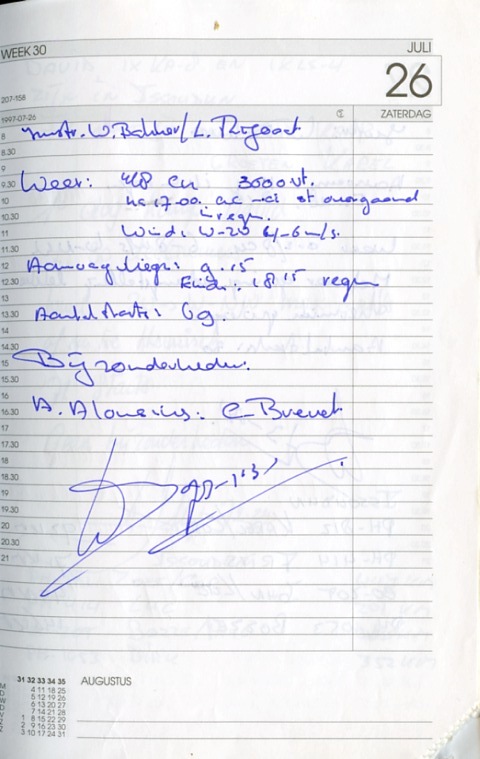 WEEK 30
JULI
26
207-158
1997-07-26
ZATERDAG
8
Instr. W. Bakker/L.
8.30
9
9.30
Weer: 4/8 cu 3000 vt.
10
na 17.00 st overgaand
10.30
in regen.
11
Wind: W-ZO 4-6 m/s.
11.30
12
Aanvang vliegen: 9.15
12.30
Einde: 18 15 regen
13
13.30
Aantal starts: 69.
14
14.30
15
Bijzonderheden:
15.30
16
16.30
A. : C-Brevet
17
17.30
18
18.30
19
19.30
20
20.30
21
31 32 33 34 35
AUGUSTUS
M 4 11 18 25
D 5 12 19 26
W 6 13 20 27
D 7 14 21 28
V 1 8 15 22 29
Z 2 9 16 23 30
Z 3 10 17 24 31